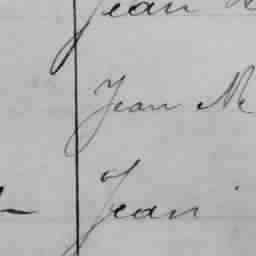 Jean
Jean M
Jean